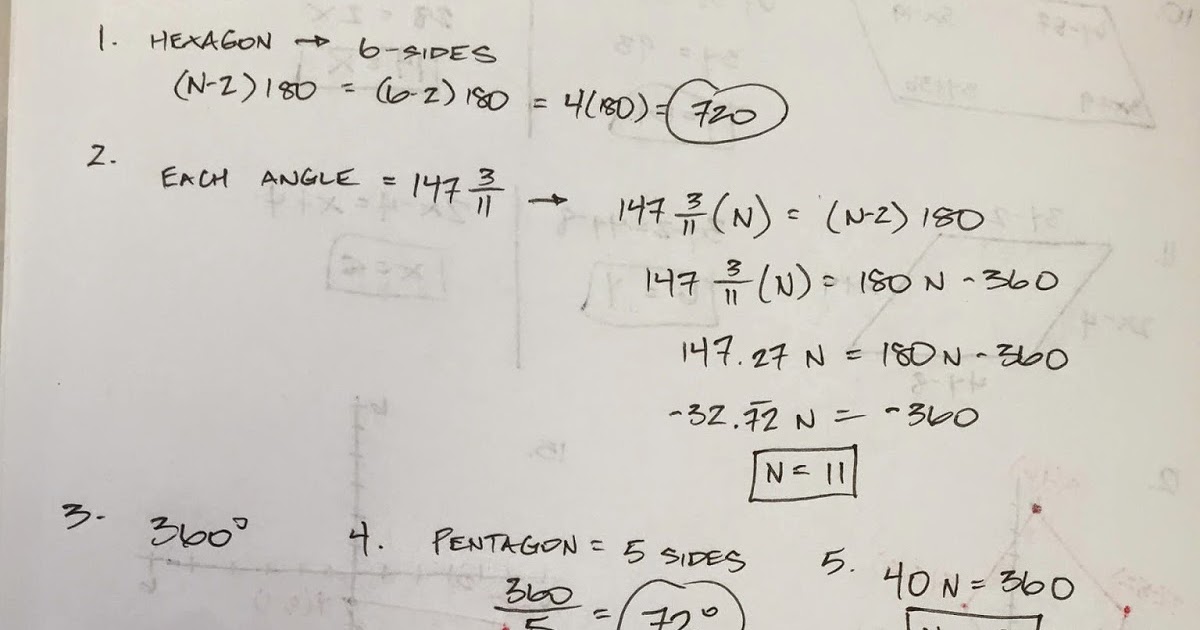 1. HEXAGON → 6-SIDES
(N-2)180 = (6-2)180 = 4(180) = 720
2.
EACH ANGLE = 147 3/11 → 147 3/11 (N) = (N-2) 180
147 3/11 (N) = 180 N - 360
147.27 N = 180N - 360
-32.7̅2 N = -360
N = 11
3. 360°
4. PENTAGON = 5 SIDES
360/5 = 72°
5. 40N = 360